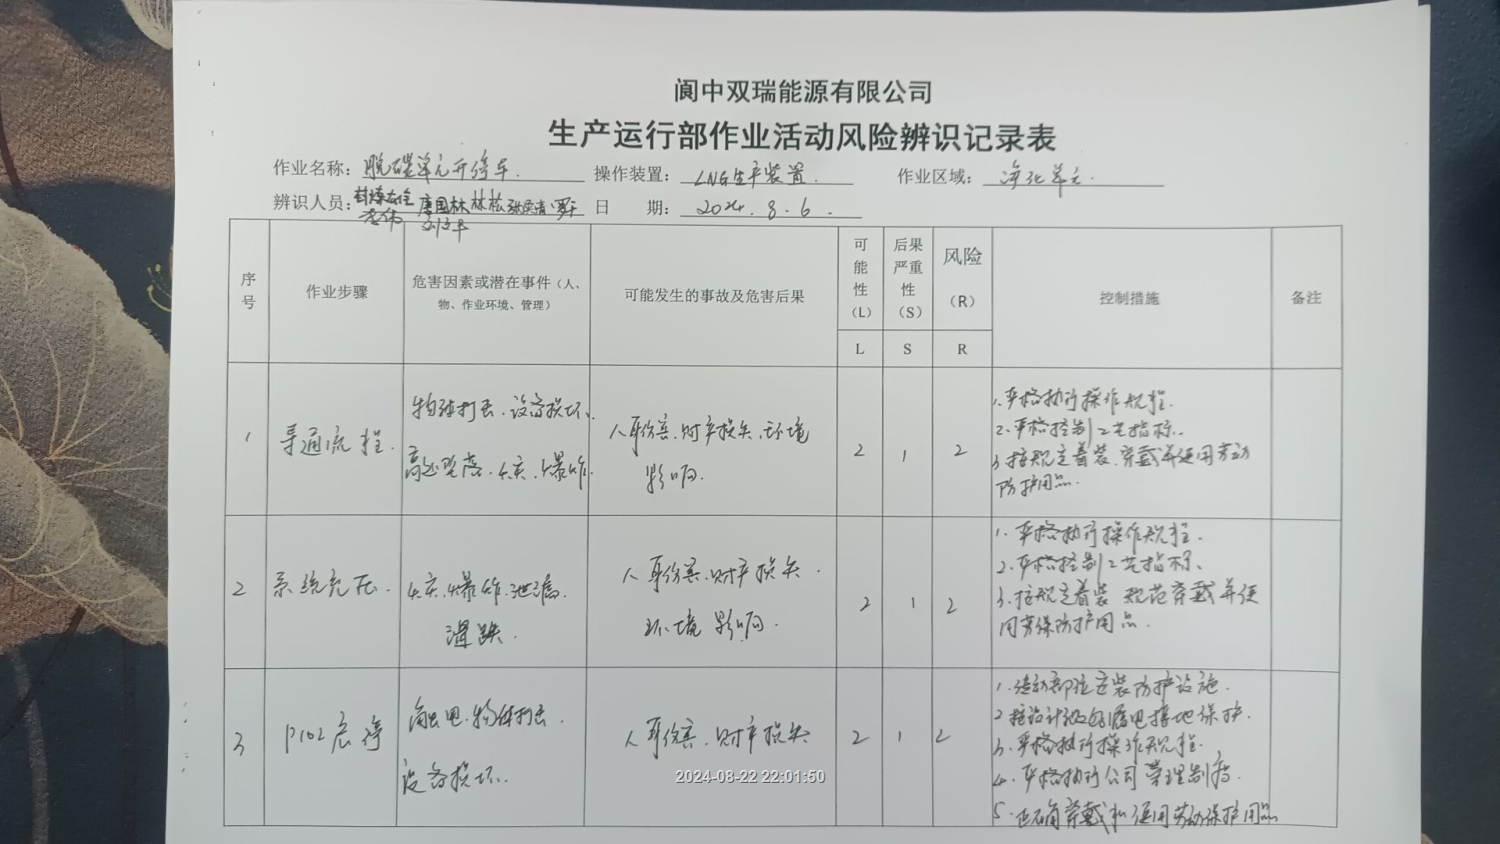 阆中双瑞能源有限公司
生产运行部作业活动风险辨识记录表
作业名称：脱碳单元开停车. 操作装置：LNG生产装置. 作业区域：净化单元.
辨识人员： 唐国林 林松 日 期：2024.8.6.
序号
作业步骤
危害因素或潜在事件（人、
物、作业环境、管理）
可能发生的事故及危害后果
可能性（L）
后果严重性（S）
风险（R）
控制措施
备注
L S R
1
导通流程.
物体打击.设备损坏.
高处坠落.火灾.爆炸.
人身伤害.财产损失.环境
影响.
2 1 2
1.严格执行操作规程.
2.严格控制工艺指标.
3.按规定着装.穿戴并使用劳动
防护用品.
2
系统充压.
火灾.爆炸.泄漏.
滑跌.
人身伤害.财产损失.
环境影响.
2 1 2
1.严格执行操作规程.
2.严格控制工艺指标.
3.按规定着装 规范穿戴并使
用劳保防护用品.
3
P102启停
触电.物体打击.
设备损坏.
人身伤害.财产损失
2 1 2
1.传动部位安装防护设施.
2.按设计做好漏电接地保护.
3.严格执行操作规程.
4.严格执行公司管理制度.
5.正确穿戴和使用劳动保护用品.
2024-08-22 22:01:50